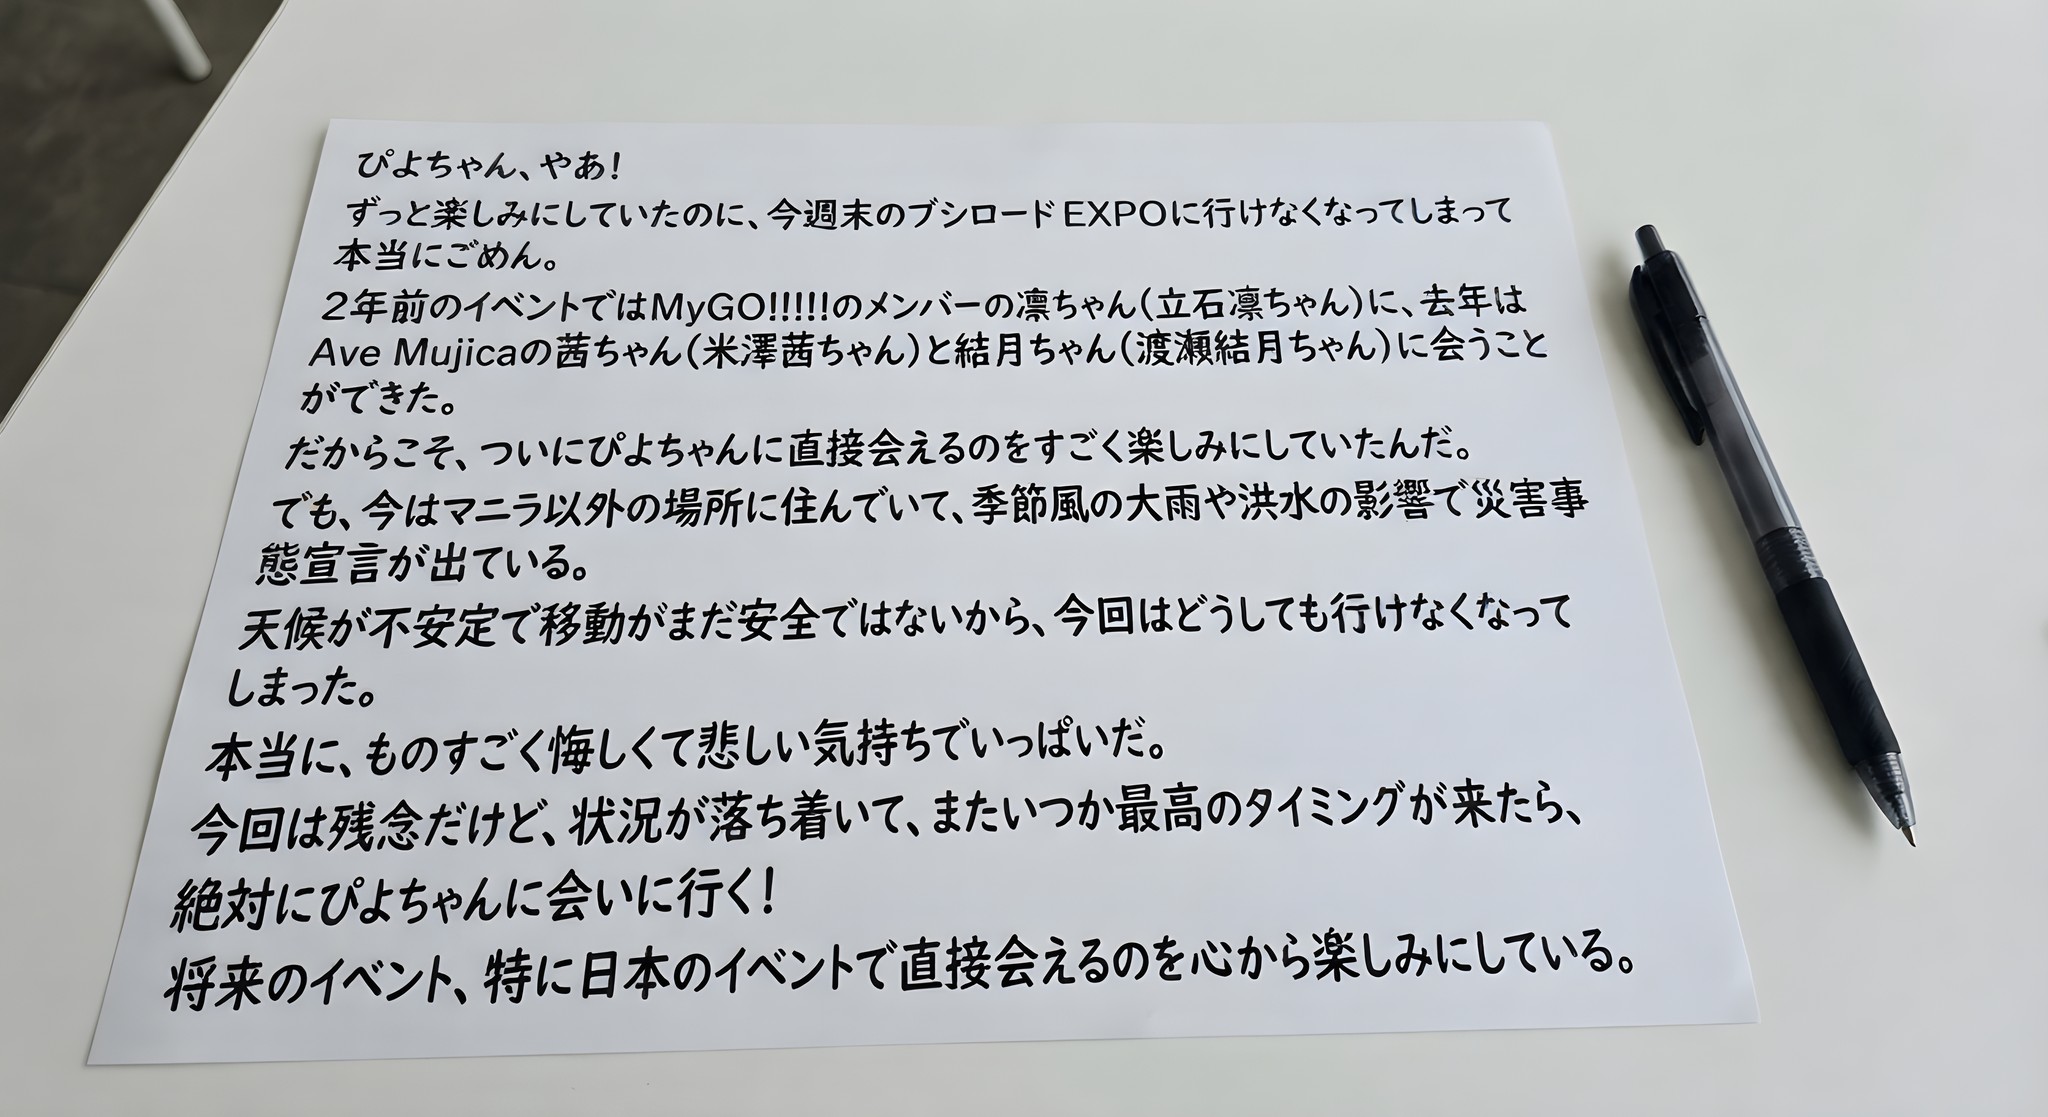 ぴよちゃん、やあ!
ずっと楽しみにしていたのに、今週末のブシロードEXPOに行けなくなってしまって
本当にごめん。
2年前のイベントではMyGO!!!!!のメンバーの凛ちゃん(立石凛ちゃん)に、去年は
Ave Mujicaの茜ちゃん(米澤茜ちゃん)と結月ちゃん(渡瀬結月ちゃん)に会うこと
ができた。
だからこそ、ついにぴよちゃんに直接会えるのをすごく楽しみにしていたんだ。
でも、今はマニラ以外の場所に住んでいて、季節風の大雨や洪水の影響で災害事
態宣言が出ている。
天候が不安定で移動がまだ安全ではないから、今回はどうしても行けなくなって
しまった。
本当に、ものすごく悔しくて悲しい気持ちでいっぱいだ。
今回は残念だけど、状況が落ち着いて、またいつか最高のタイミングが来たら、
絶対にぴよちゃんに会いに行く!
将来のイベント、特に日本のイベントで直接会えるのを心から楽しみにしている。